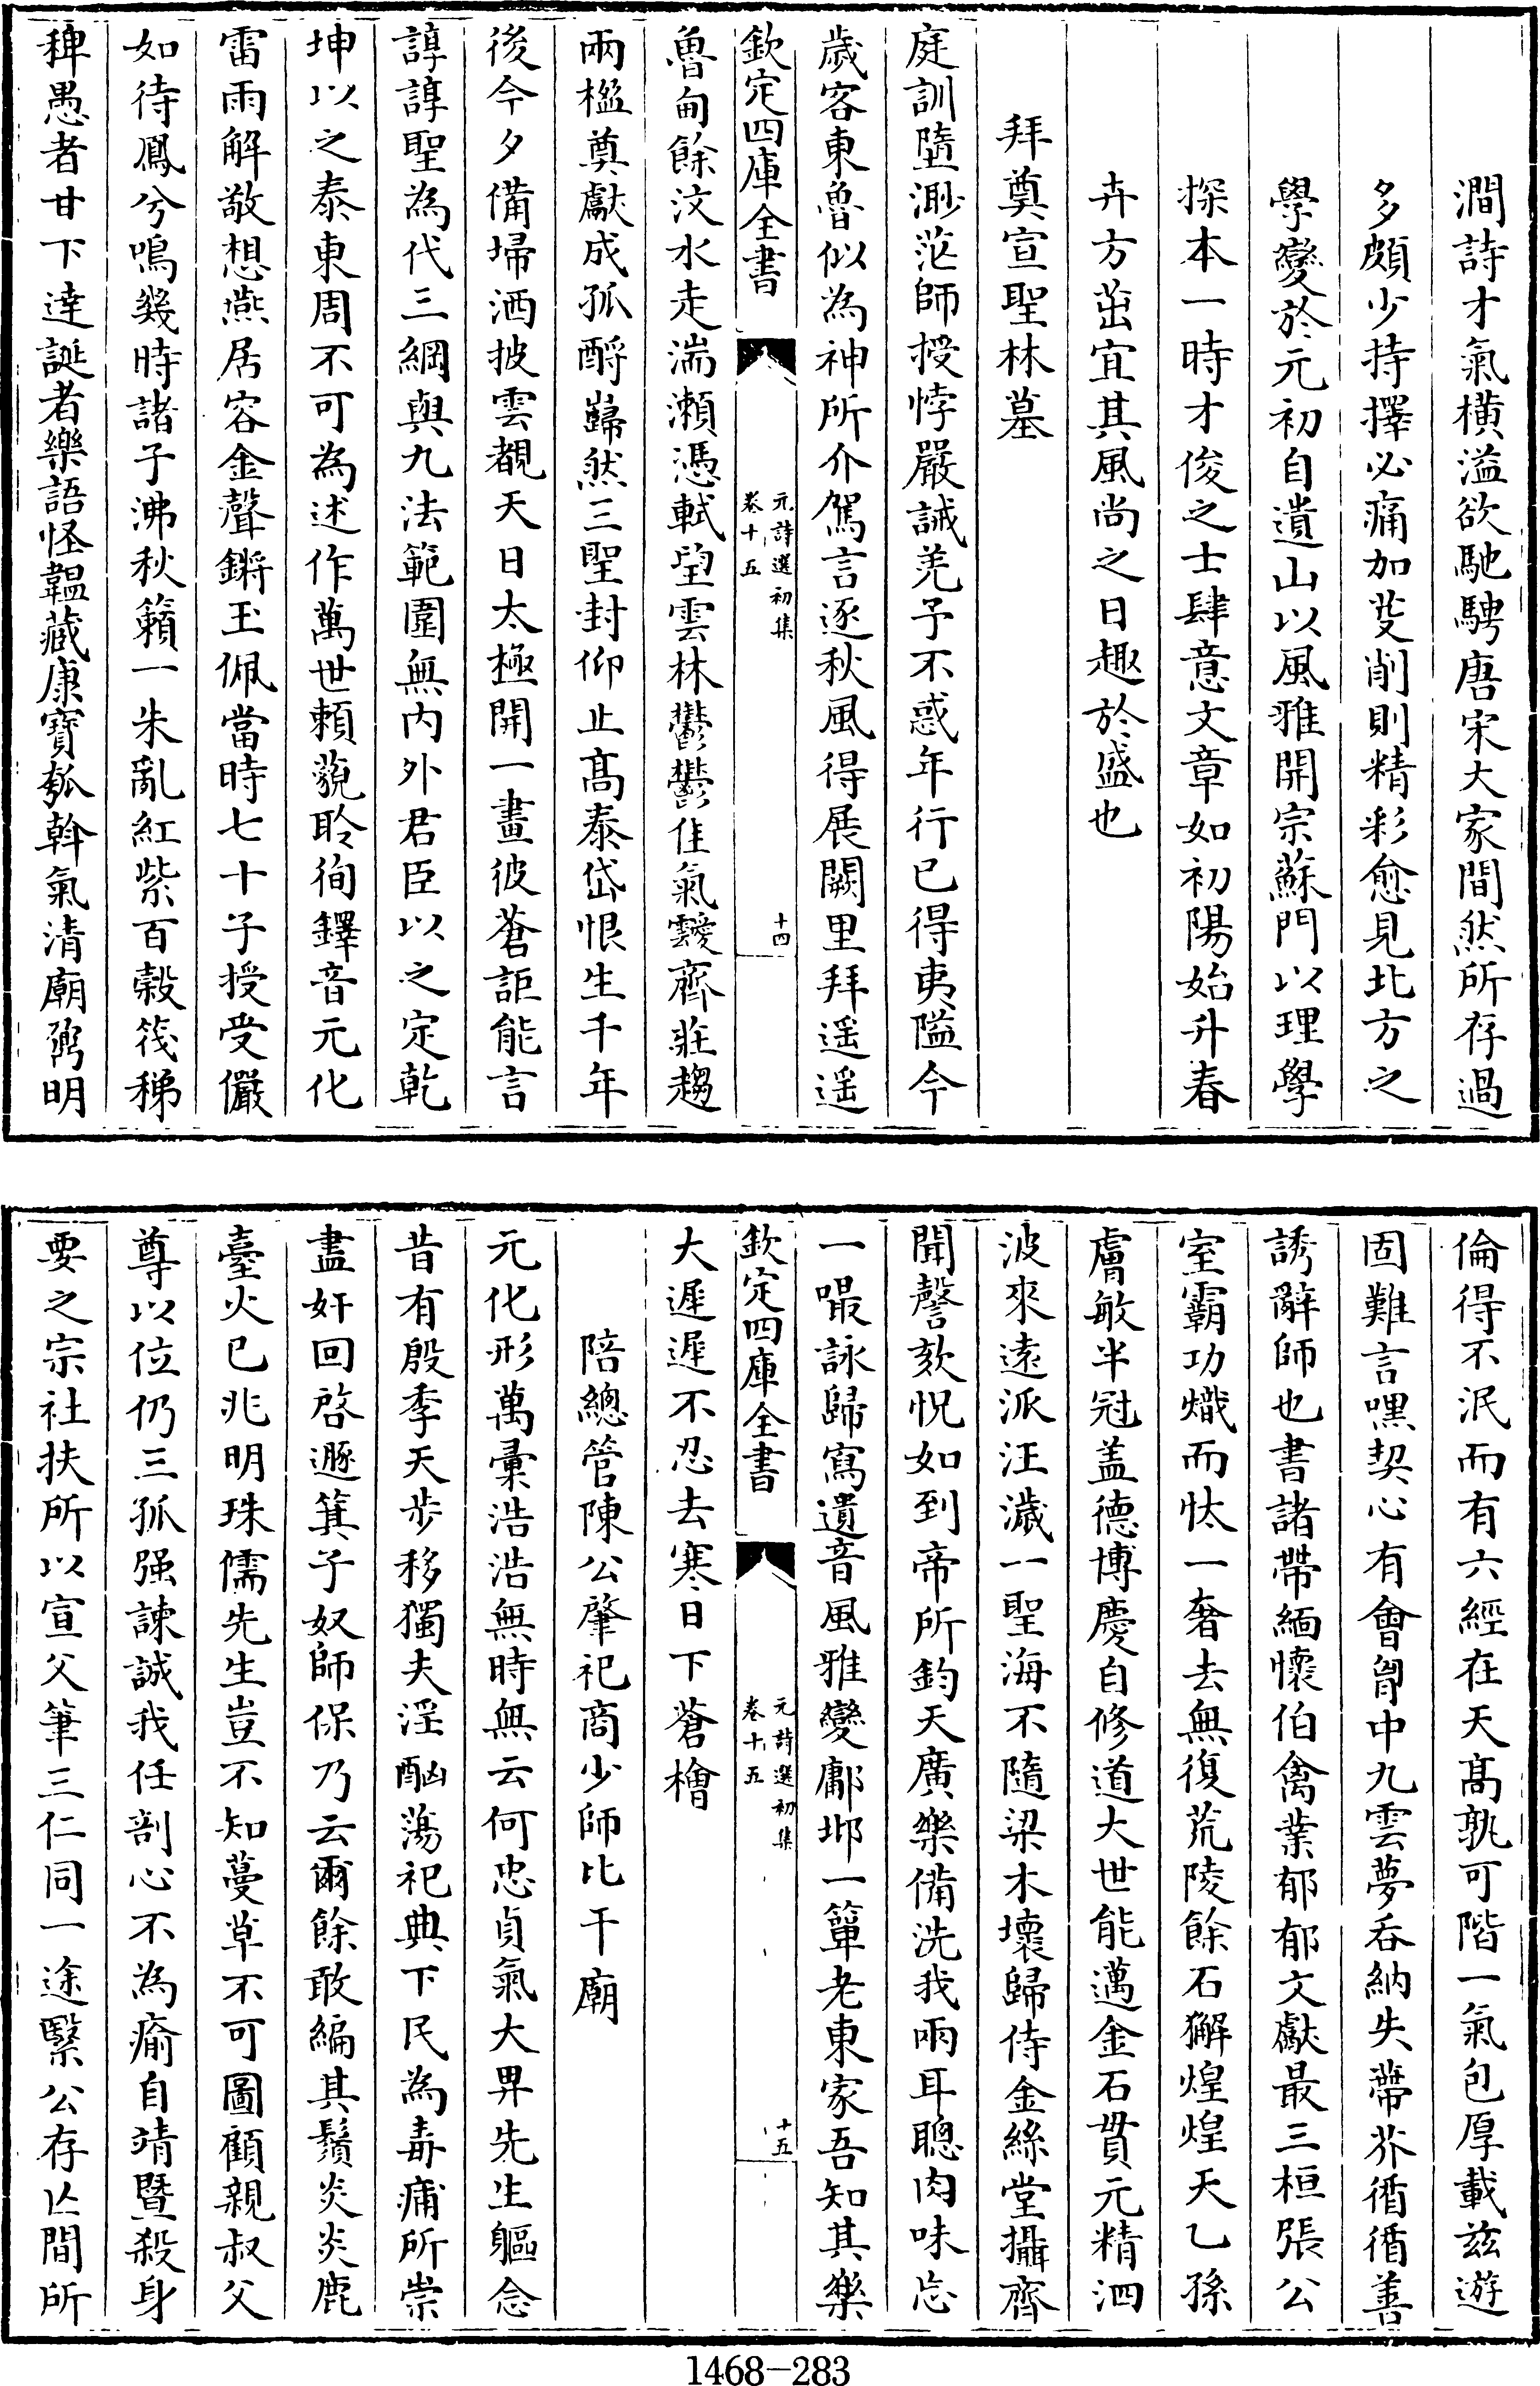 澗詩才氣横溢欲馳騁唐宋大家間然所存過
多頗少持擇必痛加芟削則精彩愈見北方之
學變於元初自遺山以風雅開宗蘇門以理學
探本一時才俊之士肆意文章如初陽始升春
卉方茁宜其風尚之日趣於盛也
拜奠宣聖林墓
庭訓墮渺茫師授悖嚴誡羌予不惑年行已得夷隘今
歲客東魯似為神所介駕言逐秋風得展闕里拜遥遥
欽定四庫全書
元詩選初集
卷十五
十四
魯甸餘汶水走湍瀬馮軾望雲林鬱鬱佳氣靉齊莊趨
兩楹奠獻成孤酹巋然三聖封仰止髙泰岱恨生千年
後今夕備埽洒披雲覩天日太極開一畫彼蒼詎能言
諄諄聖為代三綱與九法範圍無内外君臣以之定乾
坤以之泰東周不可為述作萬世頼藐聆徇鐸音元化
雷雨解敬想燕居容金聲鏘玉佩當時七十子授受儼
如待鳳兮鳴幾時諸子沸秋籟一朱亂紅紫百榖筏稊
稗愚者甘下逹誕者樂語怪韞藏康寶瓠斡氣清廟鼐明
倫得不泯而有六經在天髙孰可階一氣包厚載兹遊
固難言嘿契心有會胷中九雲夢吞納失蔕芥循循善
誘辭師也書諸帶緬懷伯禽業郁郁文獻最三桓張公
室霸功熾而忲一奢去無復荒陵餘石獬煌煌天乙孫
膚敏半冠盖德博慶自修道大世能邁金石貫元精泗
波來逺派汪濊一聖海不隨梁木壞歸侍金絲堂攝齊
聞謦欬怳如到帝所鈞天廣樂備洗我兩耳聰肉味忘
一嘬詠歸寫遺音風雅變鄘邶一簞老東家吾知其樂
欽定四庫全書
元詩選初集
卷十五
十五
大遲遲不忍去寒日下蒼檜
陪總管陳公肇祀商少師比干廟
元化形萬彚浩浩無時無云何忠貞氣大畀先生軀念
昔有殷季天步移獨夫淫酗蕩祀典下民為毒痡所崇
盡奸回啓遯箕子奴師保乃云爾餘敢編其鬚炎炎鹿
臺火已兆明珠儒先生豈不知蔓草不可圖顧親叔父
尊以位仍三孤强諫誠我任剖心不為痛自靖曁殺身
要之宗社扶所以宣父筆三仁同一途緊公存亾間所
1468-283